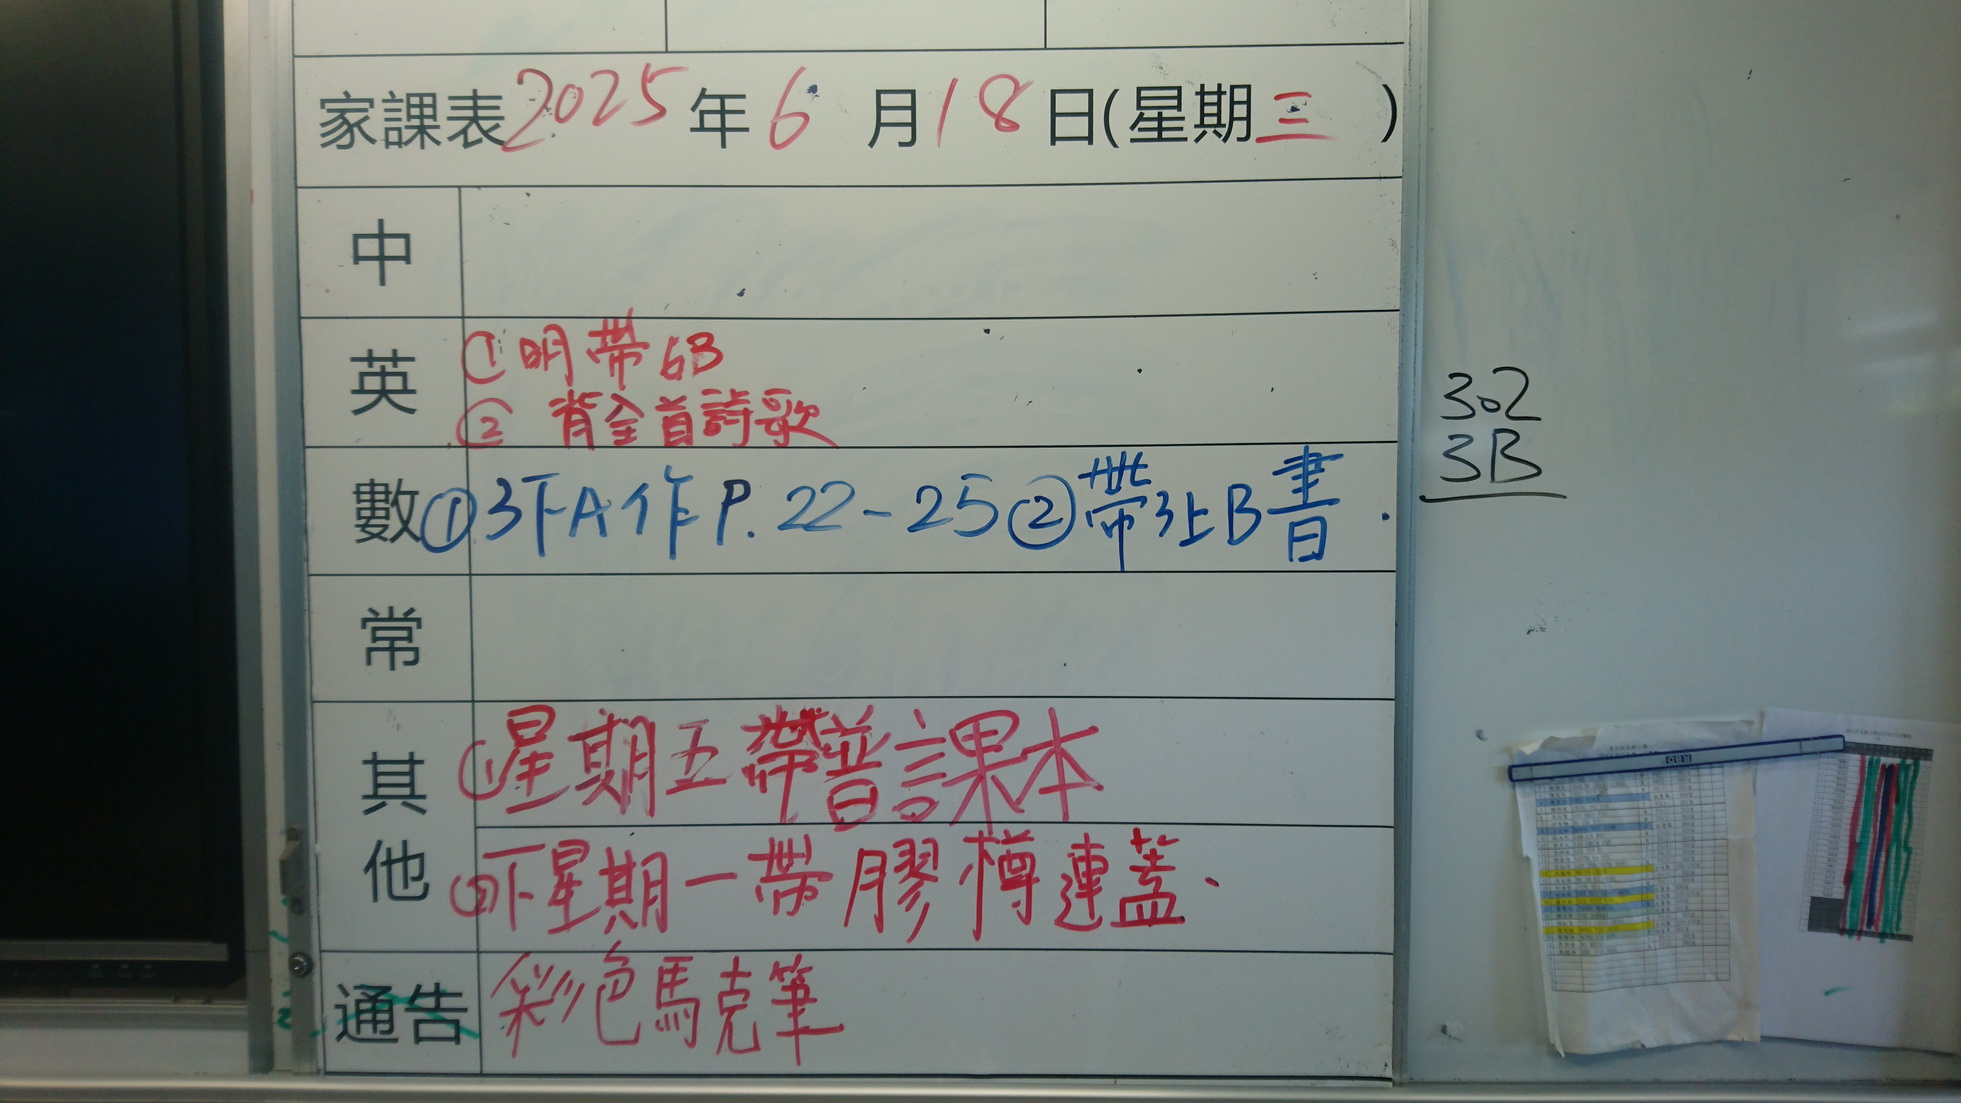 家課表2025年6月18日(星期三)
中
英 ①明帶6B
② 背全首詩歌
數 ①3下A作P.22-25②帶3上B書.
常
其他 ①星期五帶普課本
②下星期一帶膠樽連蓋.
通告 彩色馬克筆
302
3B